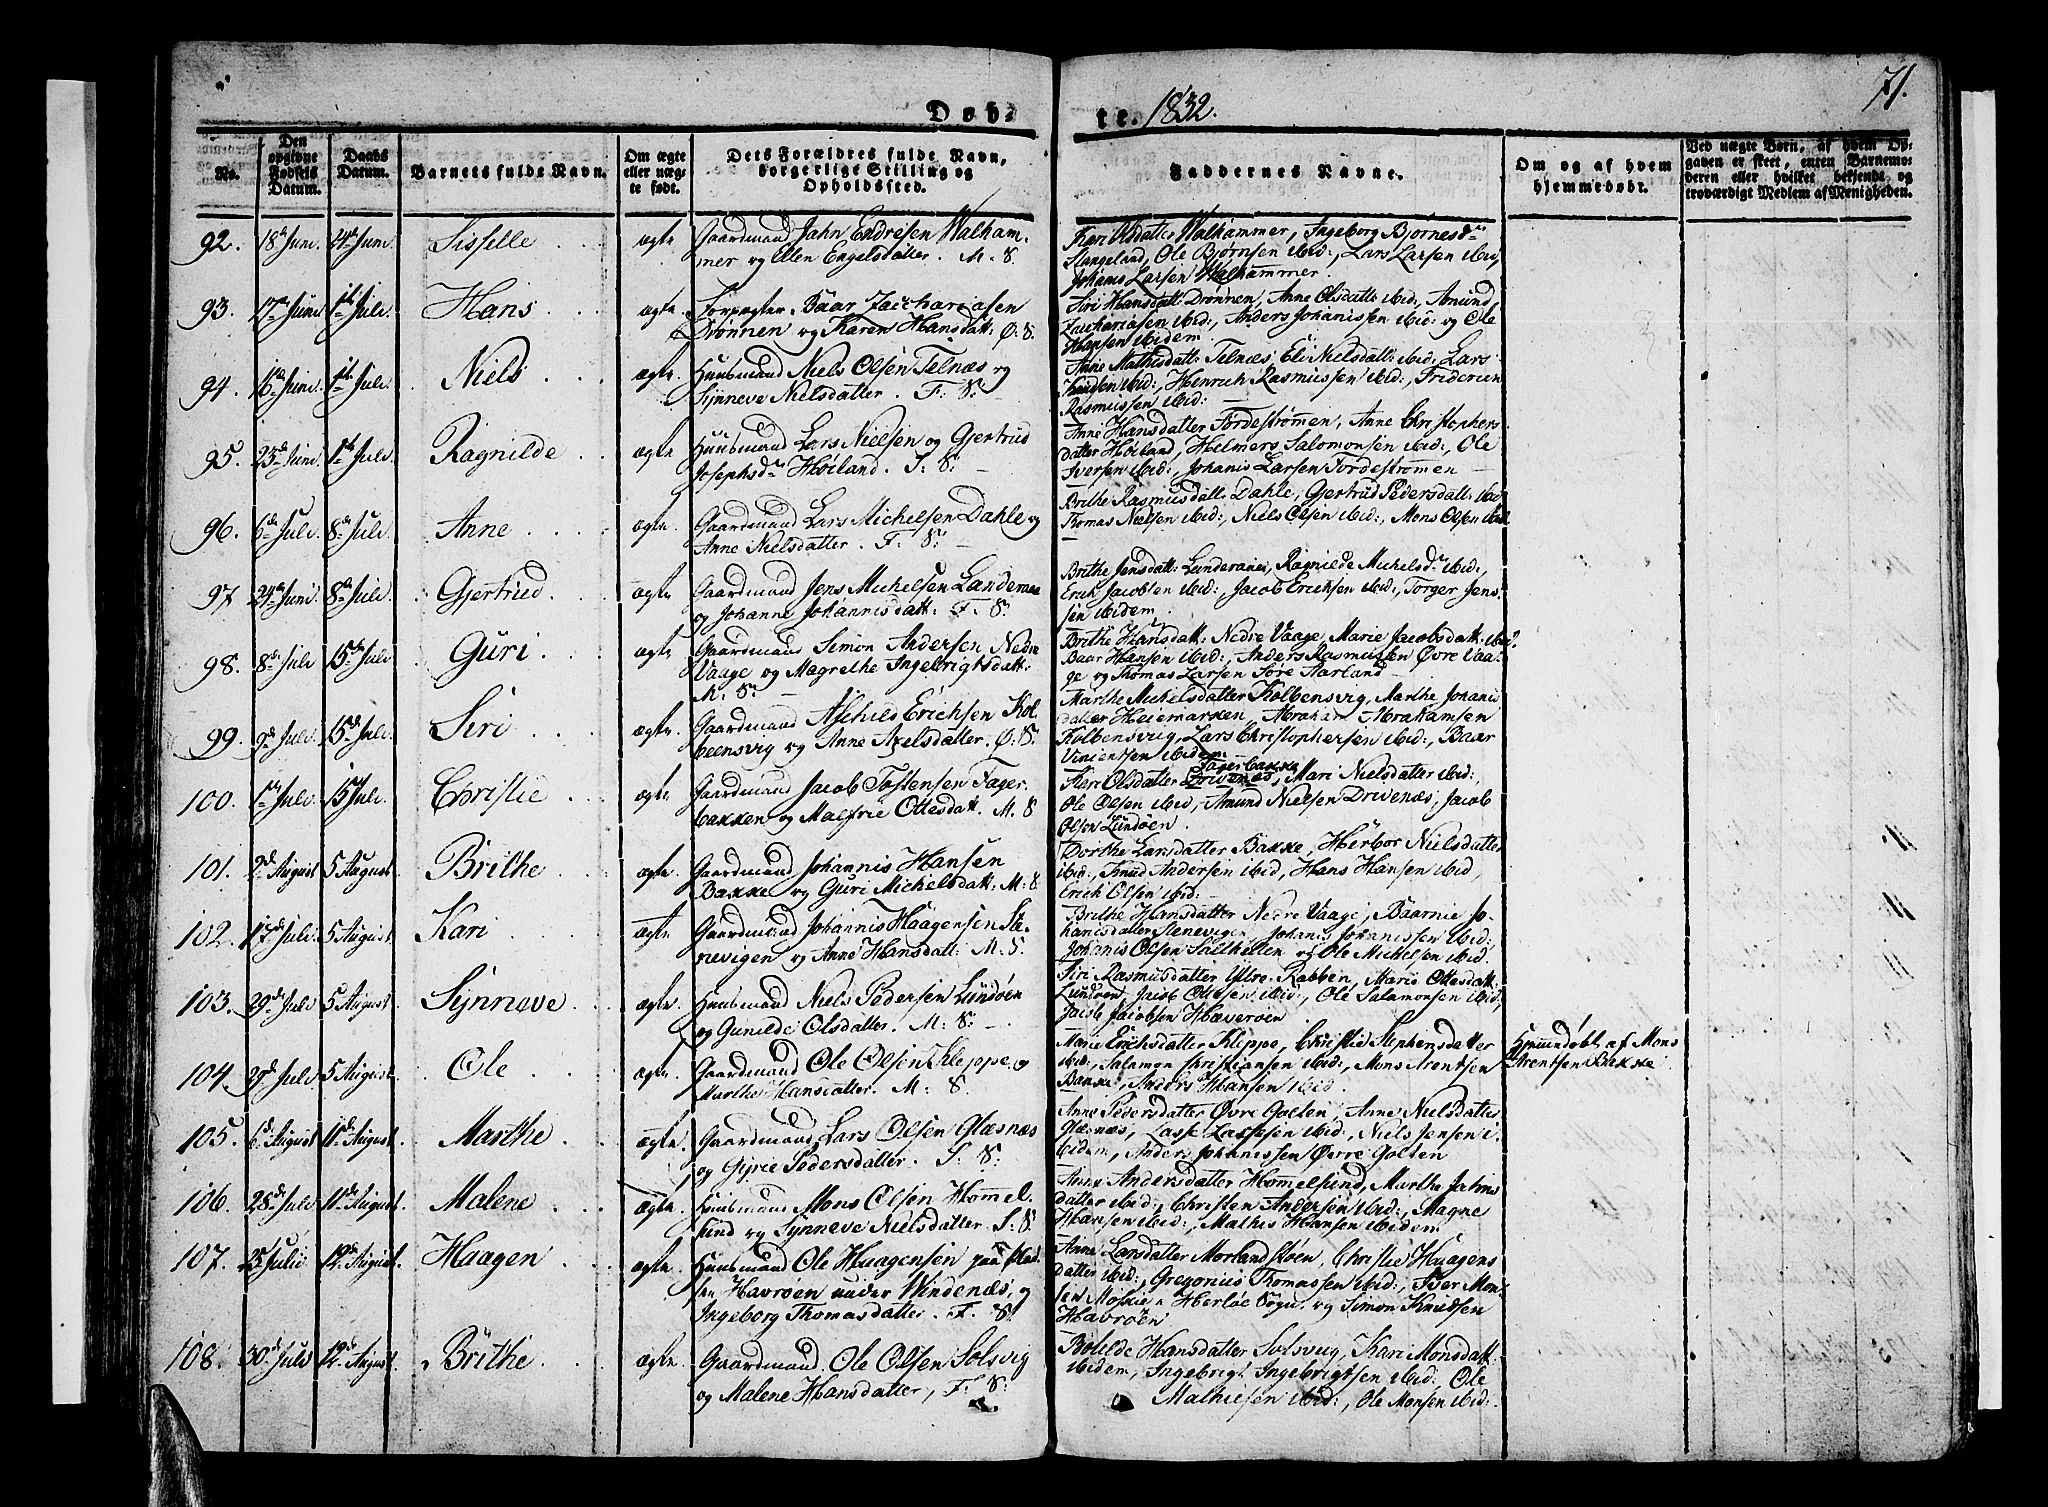 Døb-
te. 1832.
71.
No.
Den opgivne Fødsels Datum.
Daabs Datum.
Barnets fulde Navn.
Om ægte eller uægte født.
Dets Forældres fulde Navn, borgerlige Stilling og Opholdssted.
Faddernes Navne.
Om og af hvem hjemmedøbt.
Ved uægte Børn, af hvem Opgaven er skeet, enten Barnemoderen eller hvilket bekjendt og troværdigt Medlem af Menigheden.
92. 18de Juni. 24de Juni. Sisselle ægte Gaardmand Jahn Endresen Walham-
mer og Elen Engelsdatter. M: S.
Kari Olsdatter Walhammer, Ingeborg Bjørnesdr
Stangeland, Ole Bjørnsen ibid:, Lars Larsen ibid,
Johanis Larsen Walhammer.
93. 17de Juni 1ste Juli. Hans ægte. Forpagter Baar Zachariasen
Drønnen og Karen Hansdatt: Ø: S.
Siri Hansdatt: Drønnen, Anne Olsdatt: ibid:, Amund
Zachariasen ibid:, Anders Johanissen ibid: og Ole
Hansen ibidem.
94. 16de Juni 1ste Juli. Niels ægte. Huusmand Niels Olsen Telnæs og
Synneve Nielsdatter. F: S:
Anne Mathisdatt: Telnæs, Eli Nielsdatt: ibid: Lars
Knudsen ibid:, Henrich Rasmussen ibid:, Friderich
Rasmussen ibid:
95. 23de Juni. 1ste Juli. Ragnilde ægte Huusmand Lars Nielsen og Gjertrud
Josephsdr Høiland. S: S:
Anne Hansdatter Førdestrømen, Anne Christophers
datter Høiland, Helmers Salomonsen ibid:, Ole
Iversen ibid:, Johanis Larsen Førdestrømen
96. 6de Juli. 8de Juli. Anne ægte. Gaardmand Lars Michelsen Dahle og
Anne Nielsdatter. F: S:
Brithe Rasmusdatt: Dahle, Gjertrud Pedersdatt: ibid
Thomas Nielsen ibid:, Niels Olsen ibid:, Mons Olsen ibid
97 24de Juni. 8de Juli. Gjertrud ægte. Gaardmand Jens Michelsen Landeranei
og Johanne Johannisdatt: F: S:
Brithe Jensdatt: Lunderanei, Ragnilde Michelsdr ibid:,
Erich Jacobsen ibid:, Jacob Erichsen ibid:, Torger Jens-
sen ibidem.
98. 8de Juli 15de Juli Guri ægte Gaardmand Simon Andersen Nedre
Vaage og Magrethe Ingebrigtsdatt:
M: S:
Brithe Hansdatt: Nedre Vaage, Marie Jacobsdatt: ibid?
Baar Hansen ibid:, Anders Rasmussen Øvre Vaa-
ge og Thomas Larsen Søre Aarland
99. 9de Juli 15de Juli. Siri ægte. Gaardmand Aschild Erichsen Kol-
beensvig og Anne Axelsdatter. Ø: S:
Marthe Michelsdatter Kolbensvig, Marthe Johanis
datter Heiemarken, Abraham Abrahamsen
Kolbensvig, Lars Christophersen ibid:, Baar
Vincentsen ibidem.
100. 1ste Juli. 15 Juli. Christie ægte Gaardmand Jacob Tostensen Fager-
bakken og Malfrie Ottesdatt. M. S
Kari Olsdatter Drivenes Fagerbakke, Mari Nielsdatter ibid:
Ole Olsen ibid, Amund Nielsen Drivenæs, Jacob
Olsen Lundøen.
101. 2de August 5 August. Brithe ægte. Gaardmand Johannis Hansen
Bakke og Guri Michelsdatt: M: S
Dorthe Larsdatter Bakke, Herbor Nielsdatter
ibid:, Knud Andersen ibid, Hans Hansen ibid,
Erich Olsen ibid:
102. 17de Juli 5 August. Kari ægte Gaardmand Johannis Haagensen Ste-
nevigen og Anne Hansdatt: M: S.
Brithe Hansdatter Nedre Vaage, Baarnie Jo-
hanisdatter Stenevigen, Johanis Johanissen ibid:
Johanis Olsen Sælthellen og Ole Michelsen ibid.
103. 29de Juli 5 August Synneve ægte Huusmand Niels Pedersen Lundøen
og Gunilde Olsdatter. M: S:
Siri Rasmusdatter Yttre Rabben, Marie Ottesdatt
Lundøen, Jacob Ottesen ibid:, Ole Salamonsen ibid,
Jacob Jacobsen Hæverøen
104. 29de Juli 5 August. Ole ægte. Gaardmand Ole Olsen Kleppe og
Marthe Hansdatter. M: S.
Marie Erichsdatter Kleppe, Christie Stephensdatter
ibid:, Salamon Christiansen ibid:, Mons Arentsen
Bakke, Anders Hansen ibid.
Hjemmedøbt af Mons
Arentsen Bakke
105. 6de August 11de August. Marthe ægte. Gaardmand Lars Olsen Glæsnæs
og Gjyrie Pedersdatter. S: S:
Anne Pedersdatter Øvre Golten, Anne Nielsdatter
Glæsnæs, Lasse Lassesen ibid:, Niels Jensen i-
bidem, Anders Johanissen Øvre Golten
106. 28de Juli 11de August. Malene ægte. Huusmand Mons Olsen Hommel-
sund og Synneve Nielsdatter. S: S
Anne Andersdatter Hommelsund, Marthe Jahns
datter ibid:, Christen Andersen ibid:, Magne
Hansen ibid:, Mathis Hansen ibidem
107. 25de Juli 12de August. Haagen ægte. Huusmand Ole Haagensen paa Plad-
sen Havrøen under Windenæs, og
Ingeborg Thomasdatter. F. S.
Anne Larsdatter Morlandstøen, Christie Haagens
datter ibid:, Gregorius Thomassen ibid:, Iver Mon-
sen Moskie i Herløe Sogn, og Simon Knudsen
Havrøen
108. 30de Juli 12de August. Brithe ægte. Gaardmand Ole Olsen Solsvig
og Malene Hansdatter, F: S:
Bolilde Hansdatter Solsvig, Kari Monsdatt:
ibidem, Ingebrigt Ingebrigtsen ibid: Ole
Mathiesen ibid:, Ole Monsen ibid: